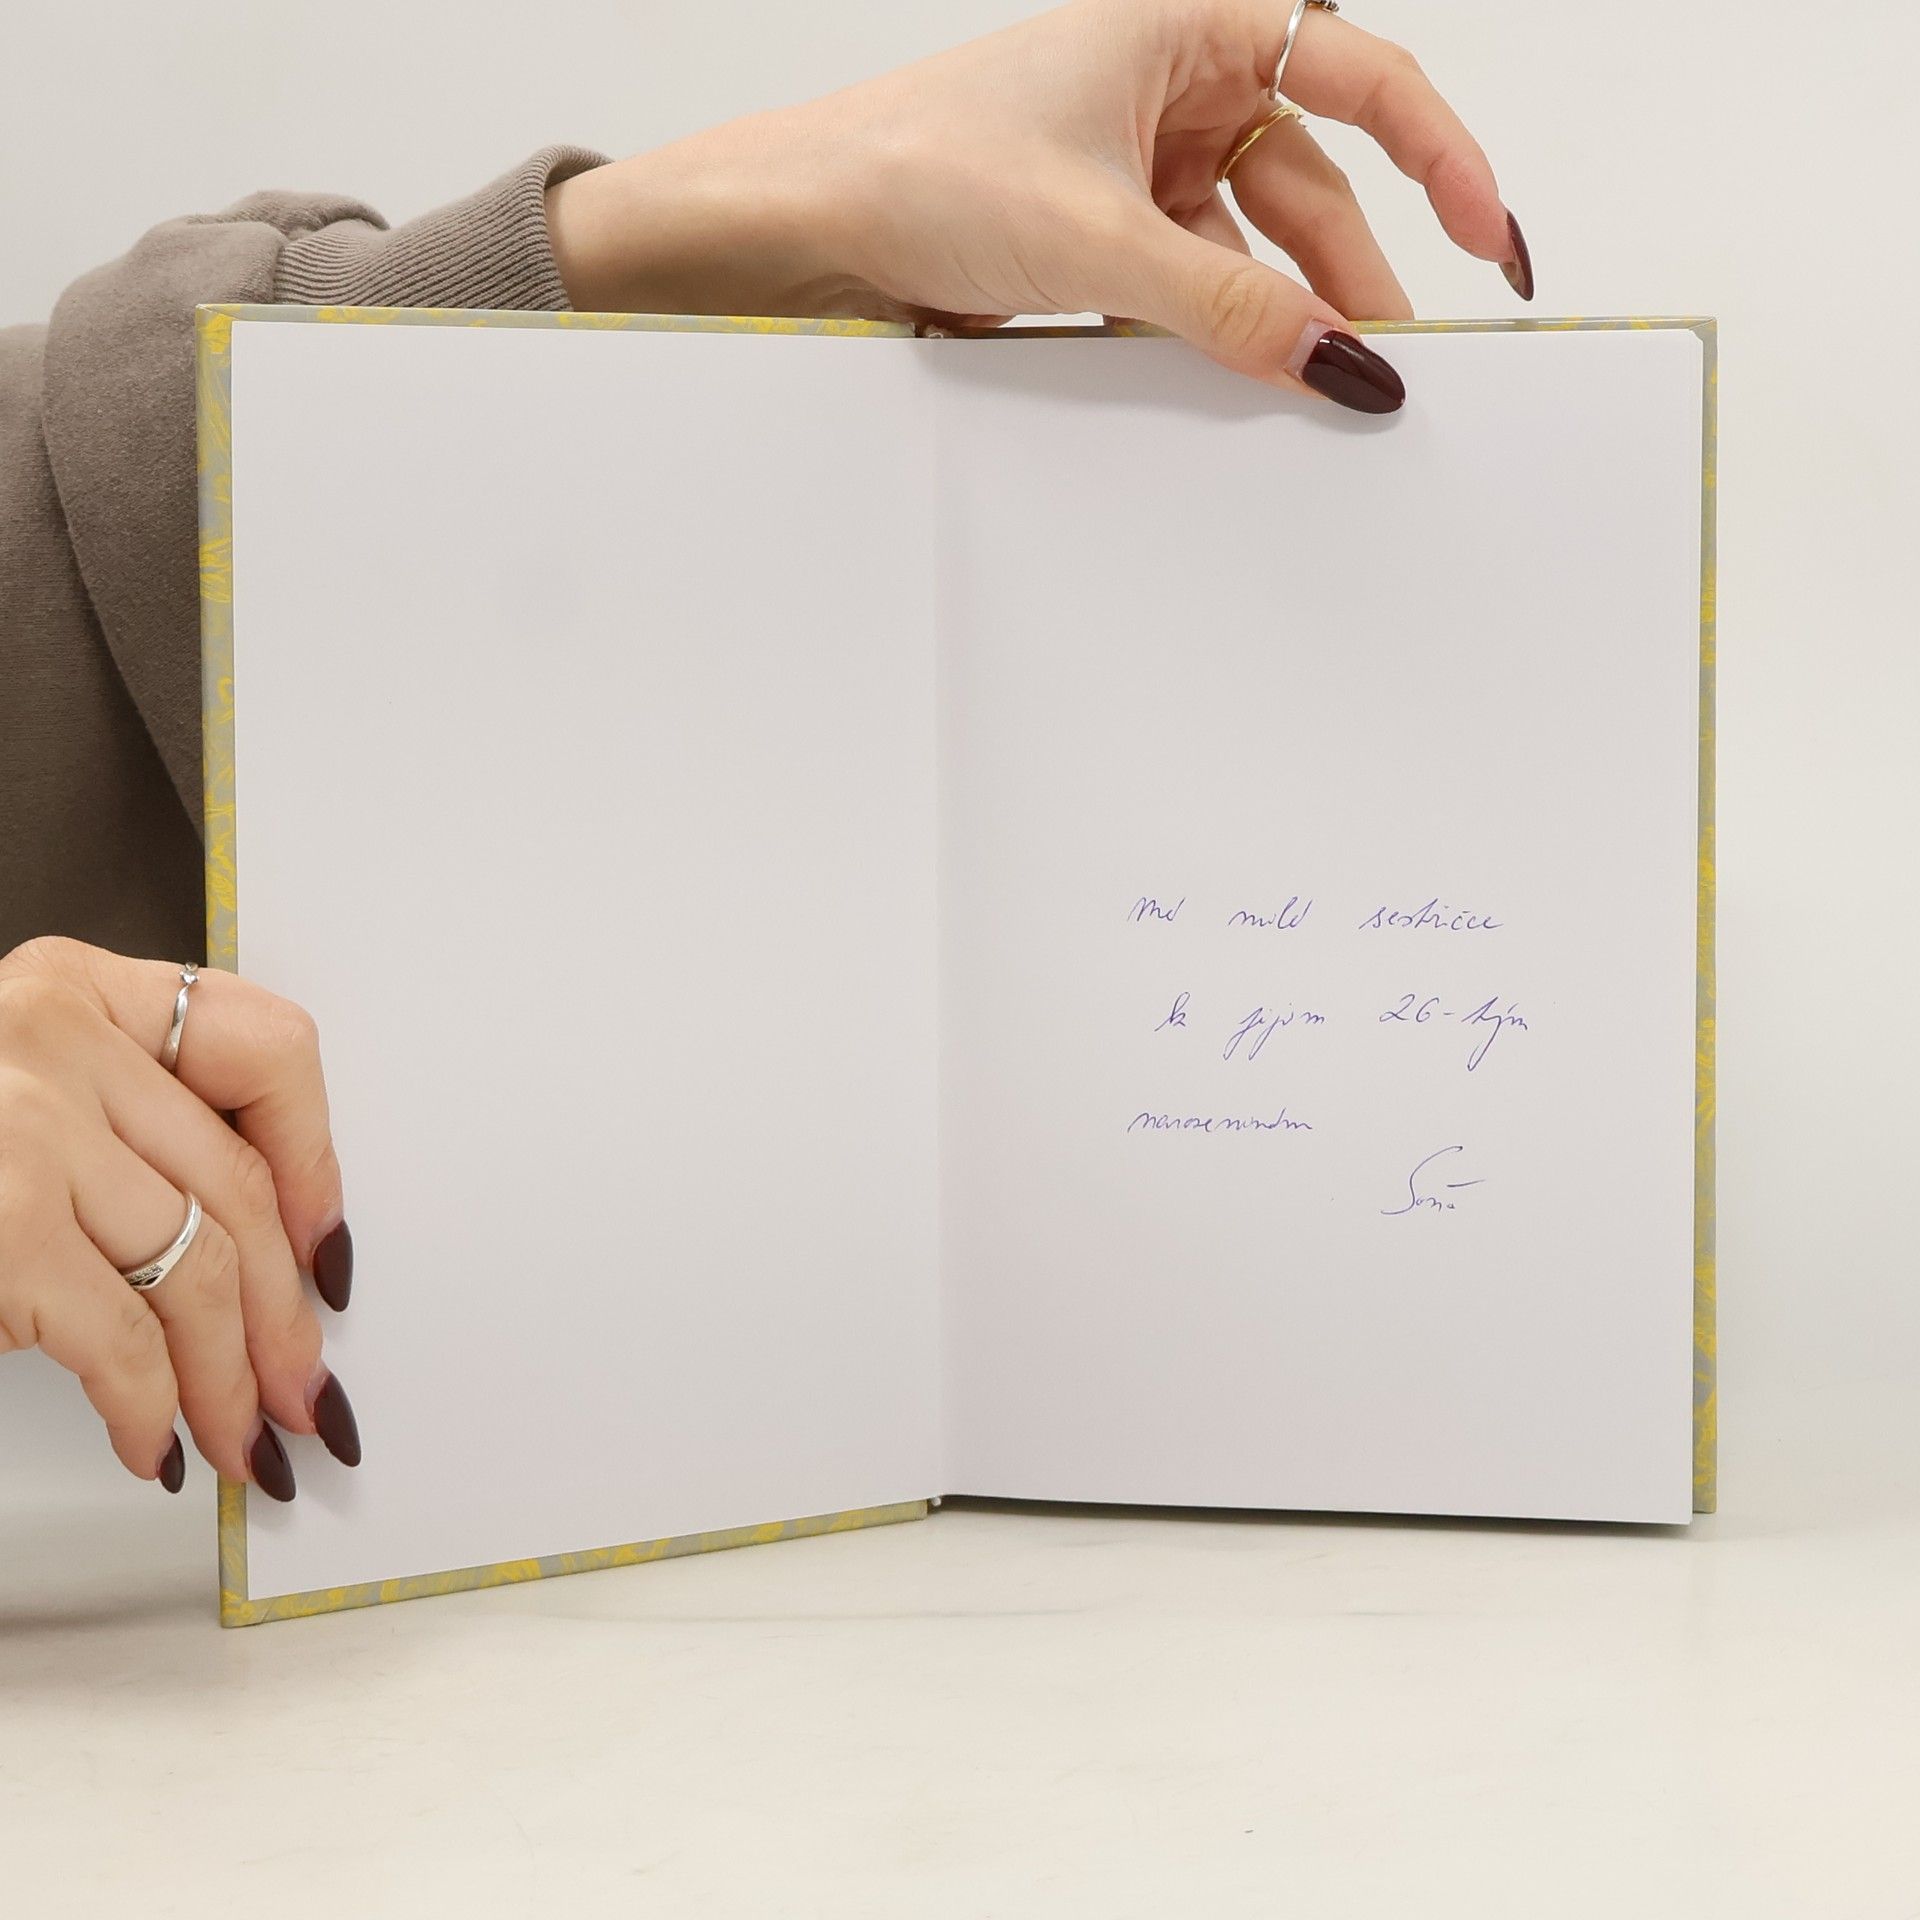 Mé milé sestřičce
k jejím 26-tým
narozeninám
Soňa